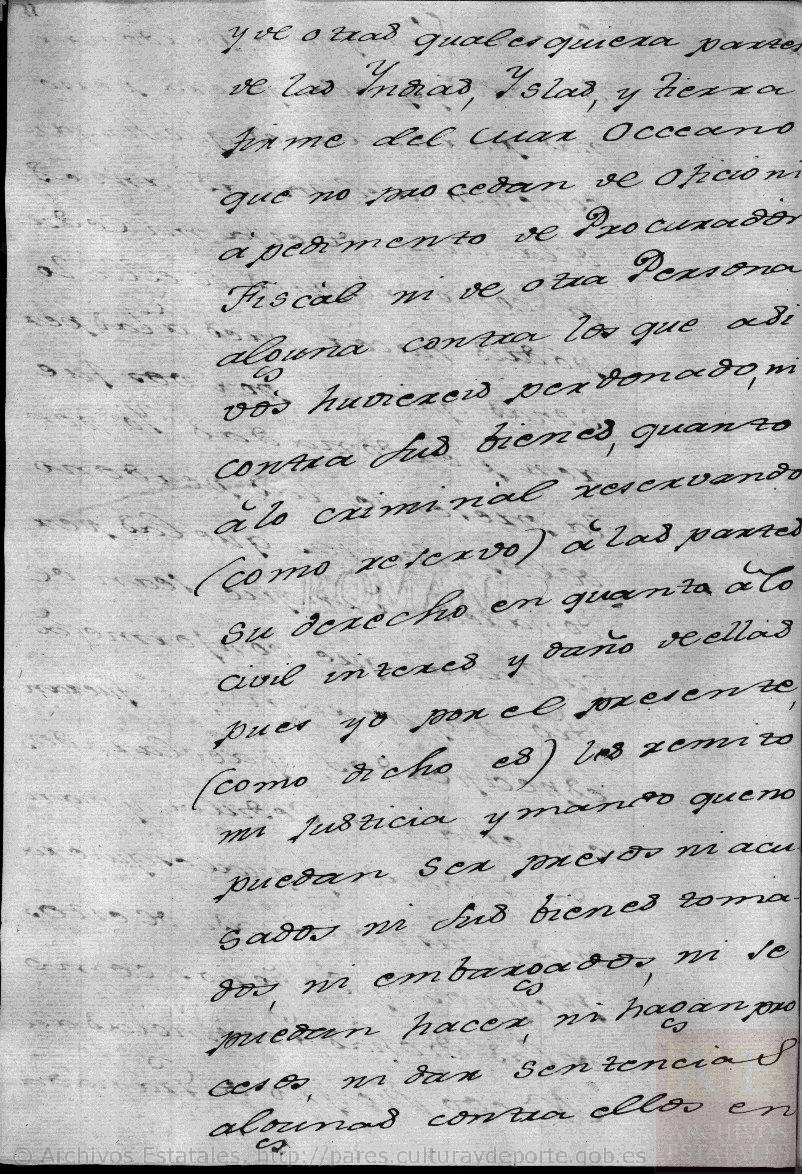 y de otras qualesquiera partes
de las Yndias, Yslas, y tierra
firme del mar Occeano
que no procedan de oficio ni
á pedimento de Procurador
Fiscàl ni de otra Persona
alguna contra los que asi
vós huviereis perdonado, ni
contra sus bienes, quanto
â lo criminal reservando
(como reservo) â las partes
su derecho en quanto â lo
civil interes y daño de ellas
pues yo por el presente,
(como dicho es) les remito
mi Justicia y mando que no
puedan ser presos ni acu
sados ni sus bienes toma-
dos, ni embargados, ni se
puedan hacer, ni hagan pro
cesos, ni dar sentencias
algunas contra ellos en
© Archivos Estatales, http://pares.culturaydeporte.gob.es